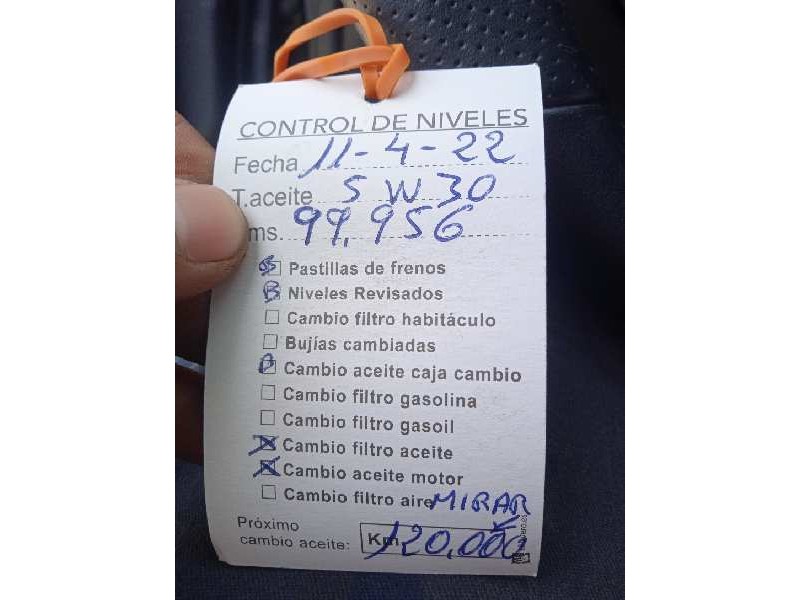 CONTROL DE NIVELES
Fecha 11-4-22
T.aceite 5 W 30
ms. 99.956
B Pastillas de frenos
B Niveles Revisados
Cambio filtro habitáculo
Bujías cambiadas
B Cambio aceite caja cambio
Cambio filtro gasolina
Cambio filtro gasoil
X Cambio filtro aceite
X Cambio aceite motor
Cambio filtro aire MIRAR
Próximo
cambio aceite: Km 120.000